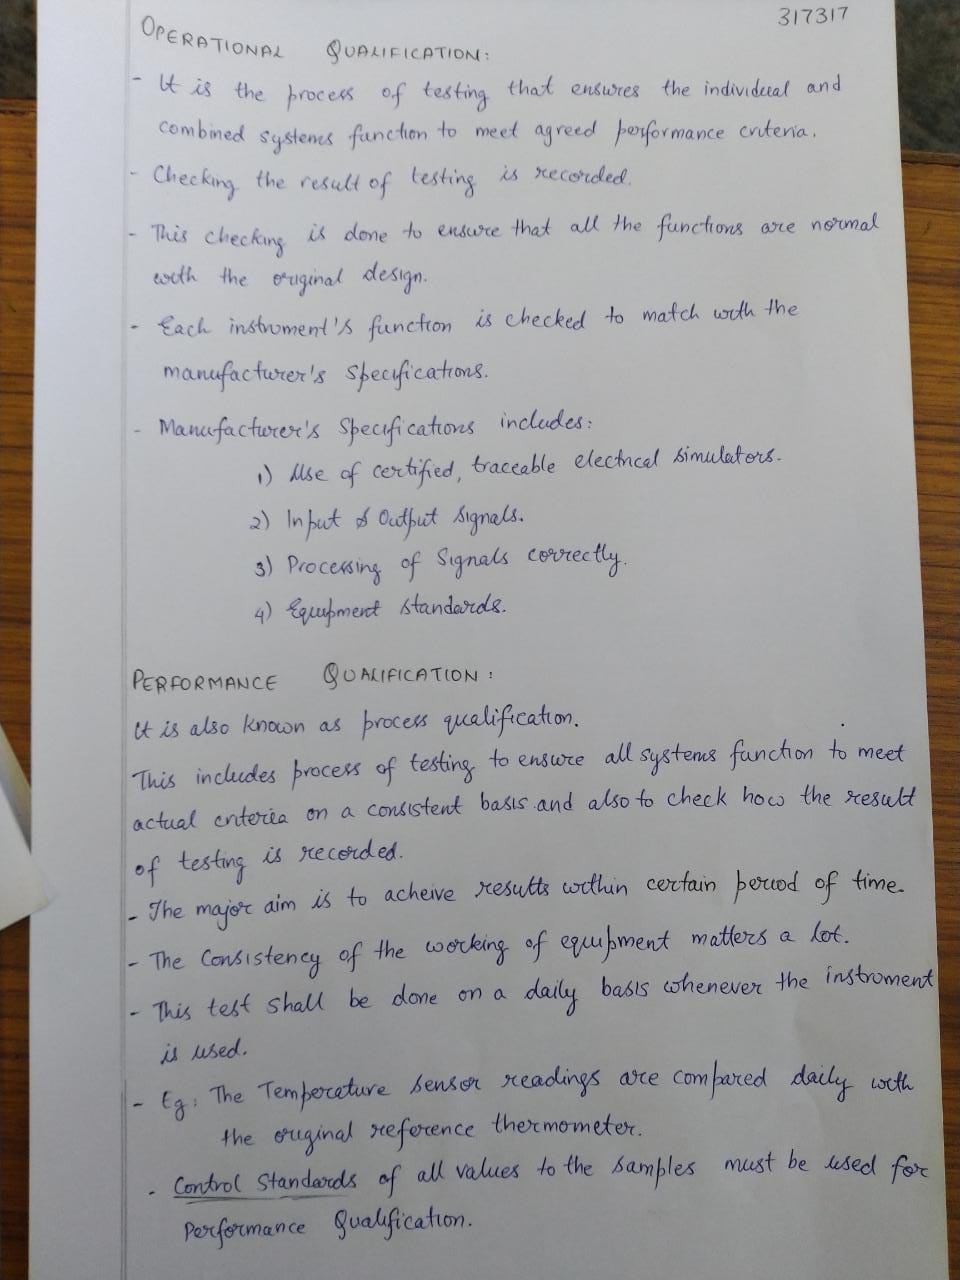 317317
OPERATIONAL QUALIFICATION:
- It is the process of testing that ensures the individual and
combined systems function to meet agreed performance criteria.
- Checking the result of testing is recorded.
- This checking is done to ensure that all the functions are normal
with the original design.
- Each instrument's function is checked to match with the
manufacturer's specifications.
- Manufacturer's specifications includes:
1) Use of certified, traceable electrical simulators.
2) Input & Output signals.
3) Processing of signals correctly.
4) Equipment standards.
PERFORMANCE QUALIFICATION:
It is also known as process qualification.
This includes process of testing to ensure all systems function to meet
actual criteria on a consistent basis and also to check how the result
of testing is recorded.
- The major aim is to acheive results within certain period of time.
- The Consistency of the working of equipment matters a lot.
- This test shall be done on a daily basis whenever the instrument
is used.
- Eg: The Temperature sensor readings are compared daily with
the original reference thermometer.
- Control Standards of all values to the samples must be used for
Performance Qualification.